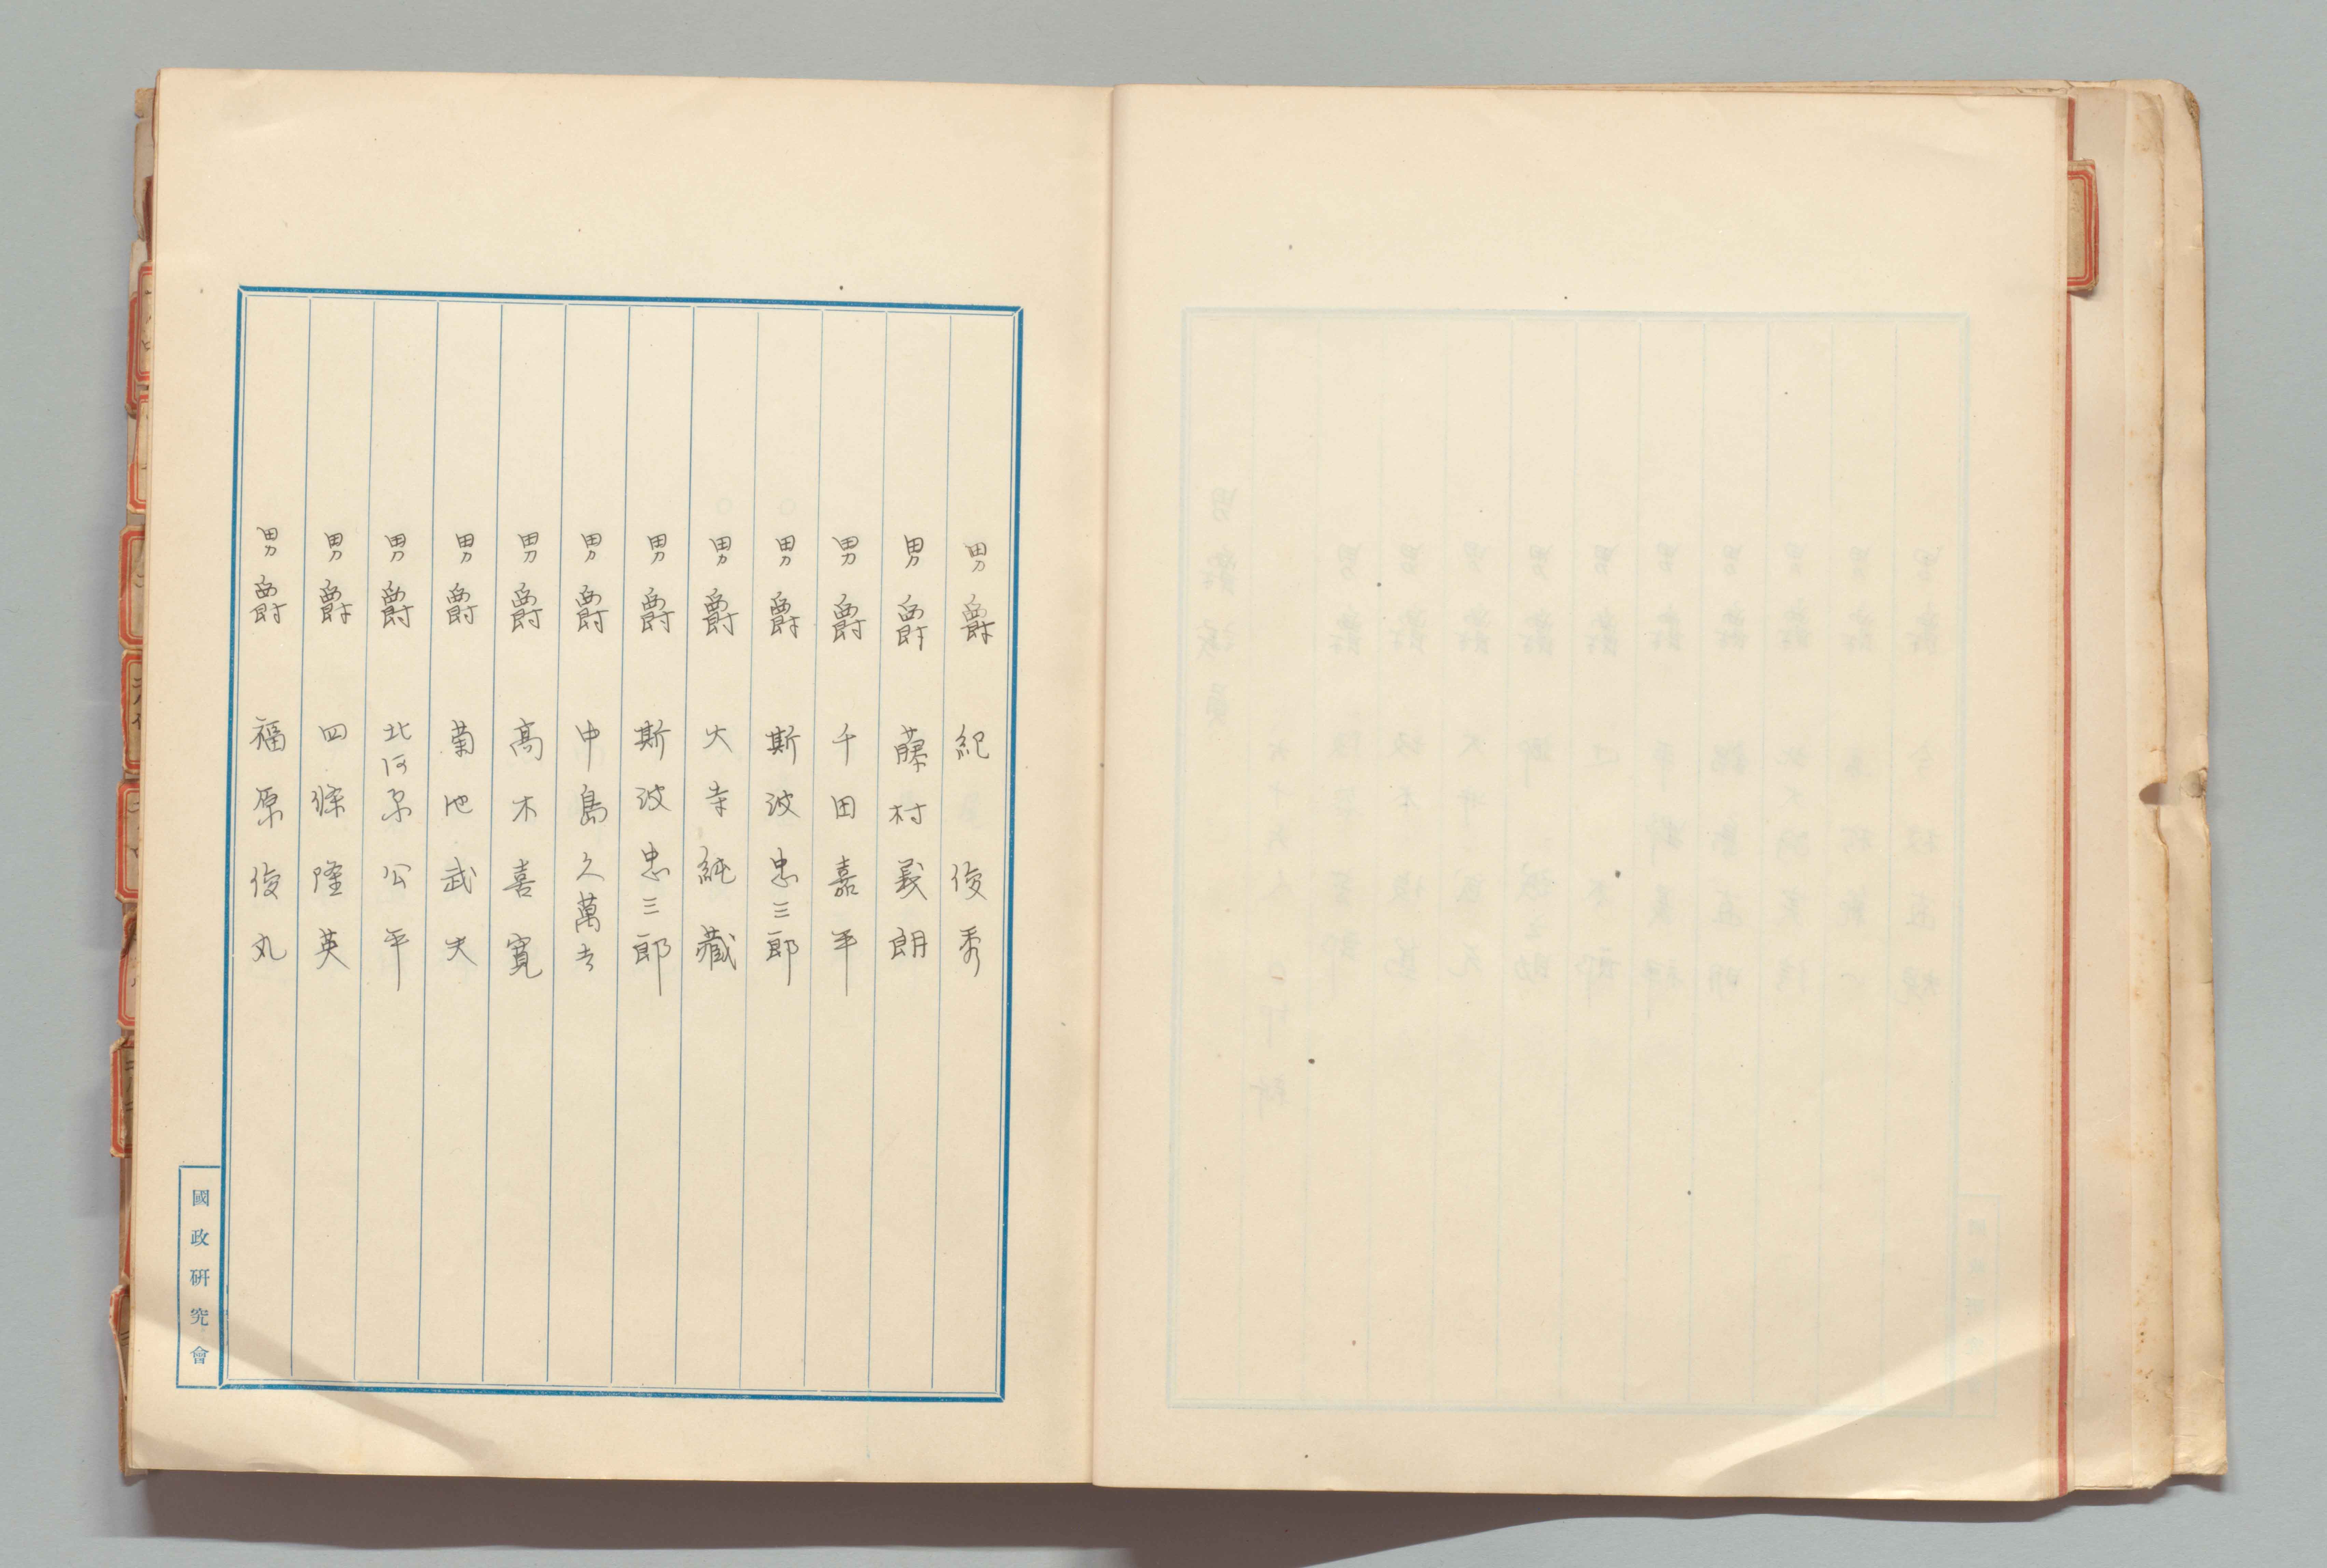 男爵 紀俊秀
男爵 藤村義朗
男爵 千田嘉平
男爵 斯波忠三郎
男爵 大寺純蔵
男爵 斯波忠三郎
男爵 中島久萬吉
男爵 高木喜寛
男爵 菊池武夫
男爵 北河原公平
男爵 四條隆英
男爵 福原俊丸
國政研究會